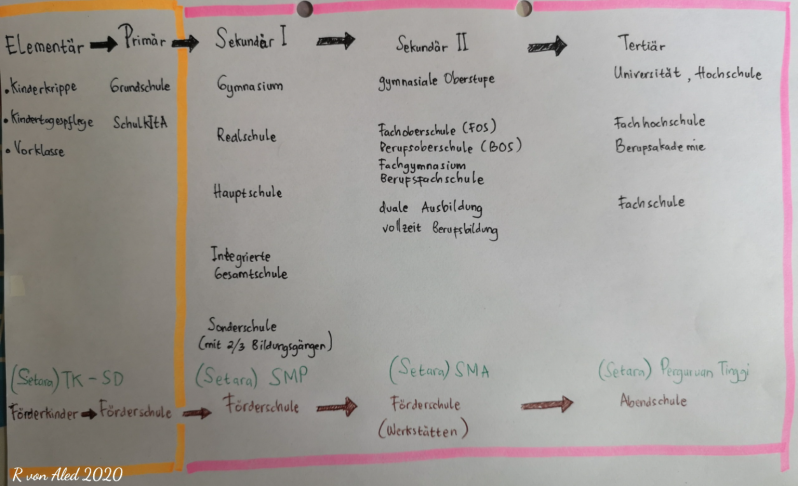 Elementär → Primär → Sekundär I → Sekundär II → Tertiär
• Kinderkrippe
• Kindertagespflege
• Vorklasse
Grundschule
SchulKItA
Gymnasium
Realschule
Hauptschule
Integrierte
Gesamtschule
Sonderschule
(mit 2/3 Bildungsgängen)
gymnasiale Oberstufe
Fachoberschule (FOS)
Berufsoberschule (BOS)
Fachgymnasium
Berufsfachschule
duale Ausbildung
vollzeit Berufsbildung
Universität, Hochschule
Fachhochschule
Berufsakademie
Fachschule
(Setara) TK - SD
(Setara) SMP
(Setara) SMA
(Setara) Perguruan Tinggi
Förderkinder → Förderschule → Förderschule → Förderschule → Abendschule
(Werkstätten)
R von Aled 2020